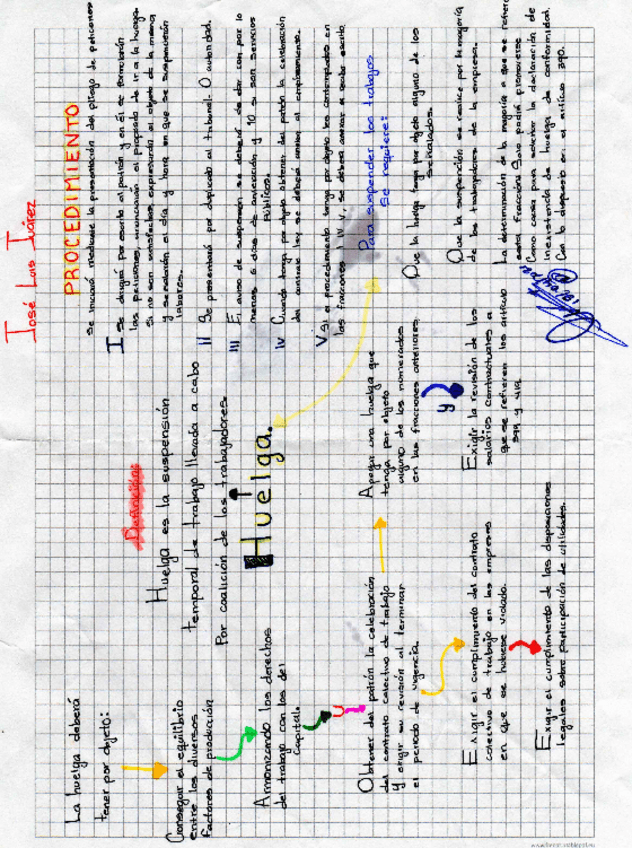 José Luis Juárez
La huelga deberá
tener por objeto:
Conseguir el equilibrio
entre los diversos
factores de producción
Armonizando los derechos
del trabajo con los del
Capital.
Y
Obtener del patrón la celebración
del contrato colectivo de trabajo
y exigir su revisión al terminar
el periodo de vigencia.
Exigir el cumplimiento del contrato
colectivo de trabajo en las empresas
en que se hubiese violado.
Exigir el cumplimiento de las disposiciones
legales sobre participación de utilidades.
Definición
Huelga es la suspensión
temporal de trabajo llevada a cabo
Por coalición de los trabajadores.
Huelga.
Apoyar una huelga que
tenga por objeto
alguno de los numerados
en las fracciones anteriores
y
Exigir la revisión de los
salarios contractuales a
que se refieren los artículo
399 y 419.
PROCEDIMIENTO
Se iniciará mediante la presentación del pliego de peticiones
I Se dirigirá por escrito al patrón y en él se formularán
las peticiones, anunciarán el propósito de ir a la huelga
si no son satisfechas, expresarán el objeto de la misma
y señalarán el día y hora en que se suspenderán
labores.
II Se presentará por duplicado al tribunal. O autoridad.
III El aviso de suspensión se deberá de dar con por lo
menos 6 días de anticipación y 10 si son servicios
Públicos.
IV Cuando tenga por objeto obtener del patrón la celebración
del contrato ley se deberá anexar al emplazamiento.
V Si el procedimiento tenga por objeto los contemplados en
las fracciones I IV V, se deberá anexar al escrito.
Para suspender los trabajos
Se requiere:
Que la huelga tenga por objeto alguno de los
señalados.
Que la suspensión se realice por la mayoría
de los trabajadores de la empresa.
La determinación de la mayoría a que se refiere
esta fracción. Solo podrá promoverse
Como causa para solicitar la declaración de
Inexistencia de huelga de conformidad,
Con lo dispuesto en el artículo 390.